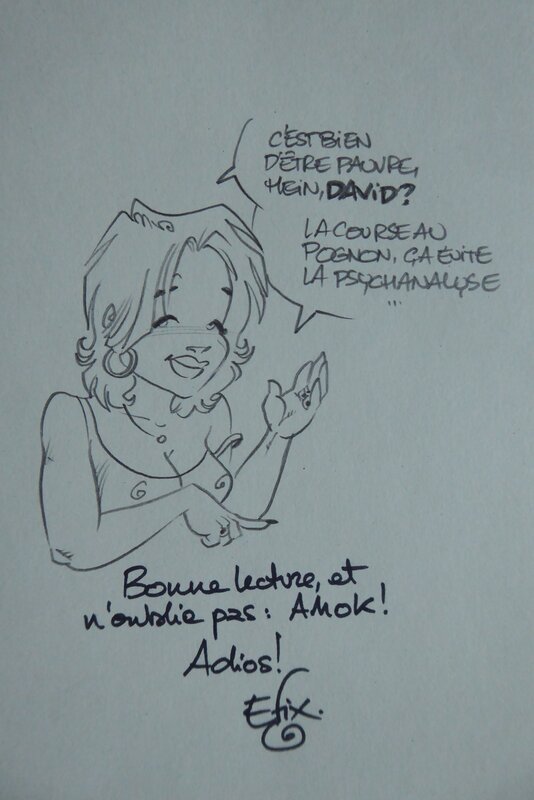 C'EST BIEN
D'ÊTRE PAUVRE,
HEIN, DAVID?
LA COURSE AU
POGNON, ÇA ÉVITE
LA PSYCHANALYSE
...
Bonne lecture, et
n'oublie pas: AMOK!
Adios!
Efix.